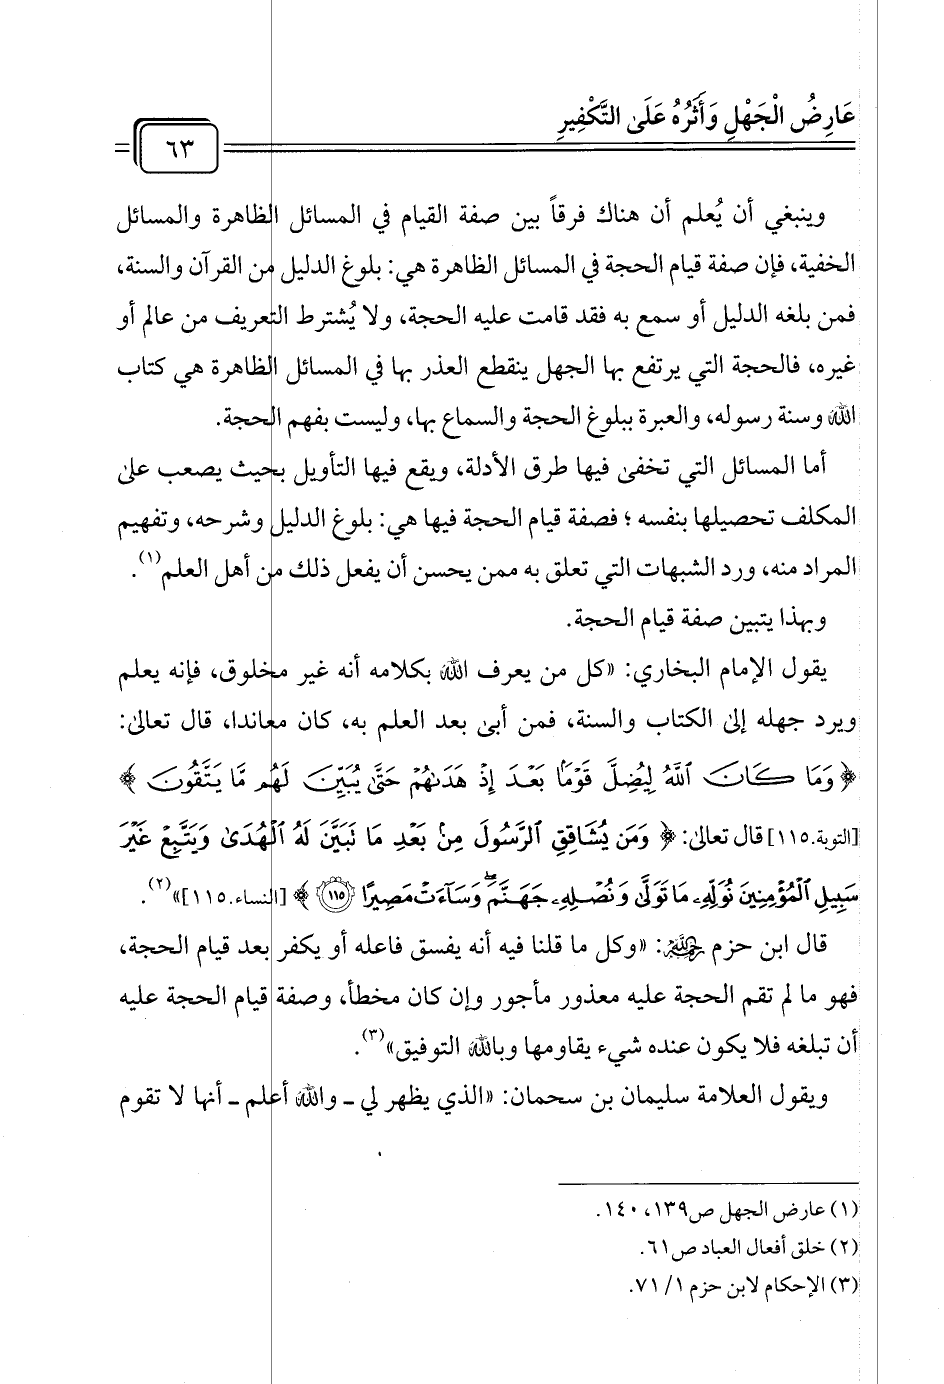 عَارِضُ الْجَهْلِ وَأَثَرُهُ عَلَى التَّكْفِيرِ
٦٣
وينبغي أن يُعلم أن هناك فرقاً بين صفة القيام في المسائل الظاهرة والمسائل
الخفية، فإن صفة قيام الحجة في المسائل الظاهرة هي: بلوغ الدليل من القرآن والسنة،
فمن بلغه الدليل أو سمع به فقد قامت عليه الحجة، ولا يُشترط التعريف من عالم أو
غيره، فالحجة التي يرتفع بها الجهل ينقطع العذر بها في المسائل الظاهرة هي كتاب
الله وسنة رسوله، والعبرة ببلوغ الحجة والسماع بها، وليست بفهم الحجة.
أما المسائل التي تخفى فيها طرق الأدلة، ويقع فيها التأويل بحيث يصعب على
المكلف تحصيلها بنفسه ؛ فصفة قيام الحجة فيها هي: بلوغ الدليل وشرحه، وتفهيم
المراد منه، ورد الشبهات التي تعلق به ممن يحسن أن يفعل ذلك من أهل العلم(١).
وبهذا يتبين صفة قيام الحجة.
يقول الإمام البخاري: «كل من يعرف الله بكلامه أنه غير مخلوق، فإنه يعلم
ويرد جهله إلى الكتاب والسنة، فمن أبى بعد العلم به، كان معاندا، قال تعالى:
﴿ وَمَا كَانَ ٱللَّهُ لِيُضِلَّ قَوْمًا بَعْدَ إِذْ هَدَىٰهُمْ حَتَّىٰ يُبَيِّنَ لَهُم مَّا يَتَّقُونَ ﴾
[التوبة.١١٥] قال تعالى: ﴿ وَمَن يُشَاقِقِ ٱلرَّسُولَ مِنۢ بَعْدِ مَا تَبَيَّنَ لَهُ ٱلْهُدَىٰ وَيَتَّبِعْ غَيْرَ
سَبِيلِ ٱلْمُؤْمِنِينَ نُوَلِّهِۦ مَا تَوَلَّىٰ وَنُصْلِهِۦ جَهَنَّمَ ۖ وَسَآءَتْ مَصِيرًا ١١٥ ﴾ [النساء.١١٥]»(٢).
قال ابن حزم رحمه الله: «وكل ما قلنا فيه أنه يفسق فاعله أو يكفر بعد قيام الحجة،
فهو ما لم تقم الحجة عليه معذور مأجور وإن كان مخطأ، وصفة قيام الحجة عليه
أن تبلغه فلا يكون عنده شيء يقاومها وبالله التوفيق»(٣).
ويقول العلامة سليمان بن سحمان: «الذي يظهر لي ـ والله أعلم ـ أنها لا تقوم
(١) عارض الجهل ص١٣٩، ١٤٠.
(٢) خلق أفعال العباد ص٦١.
(٣) الإحكام لابن حزم ١/ ٧١.